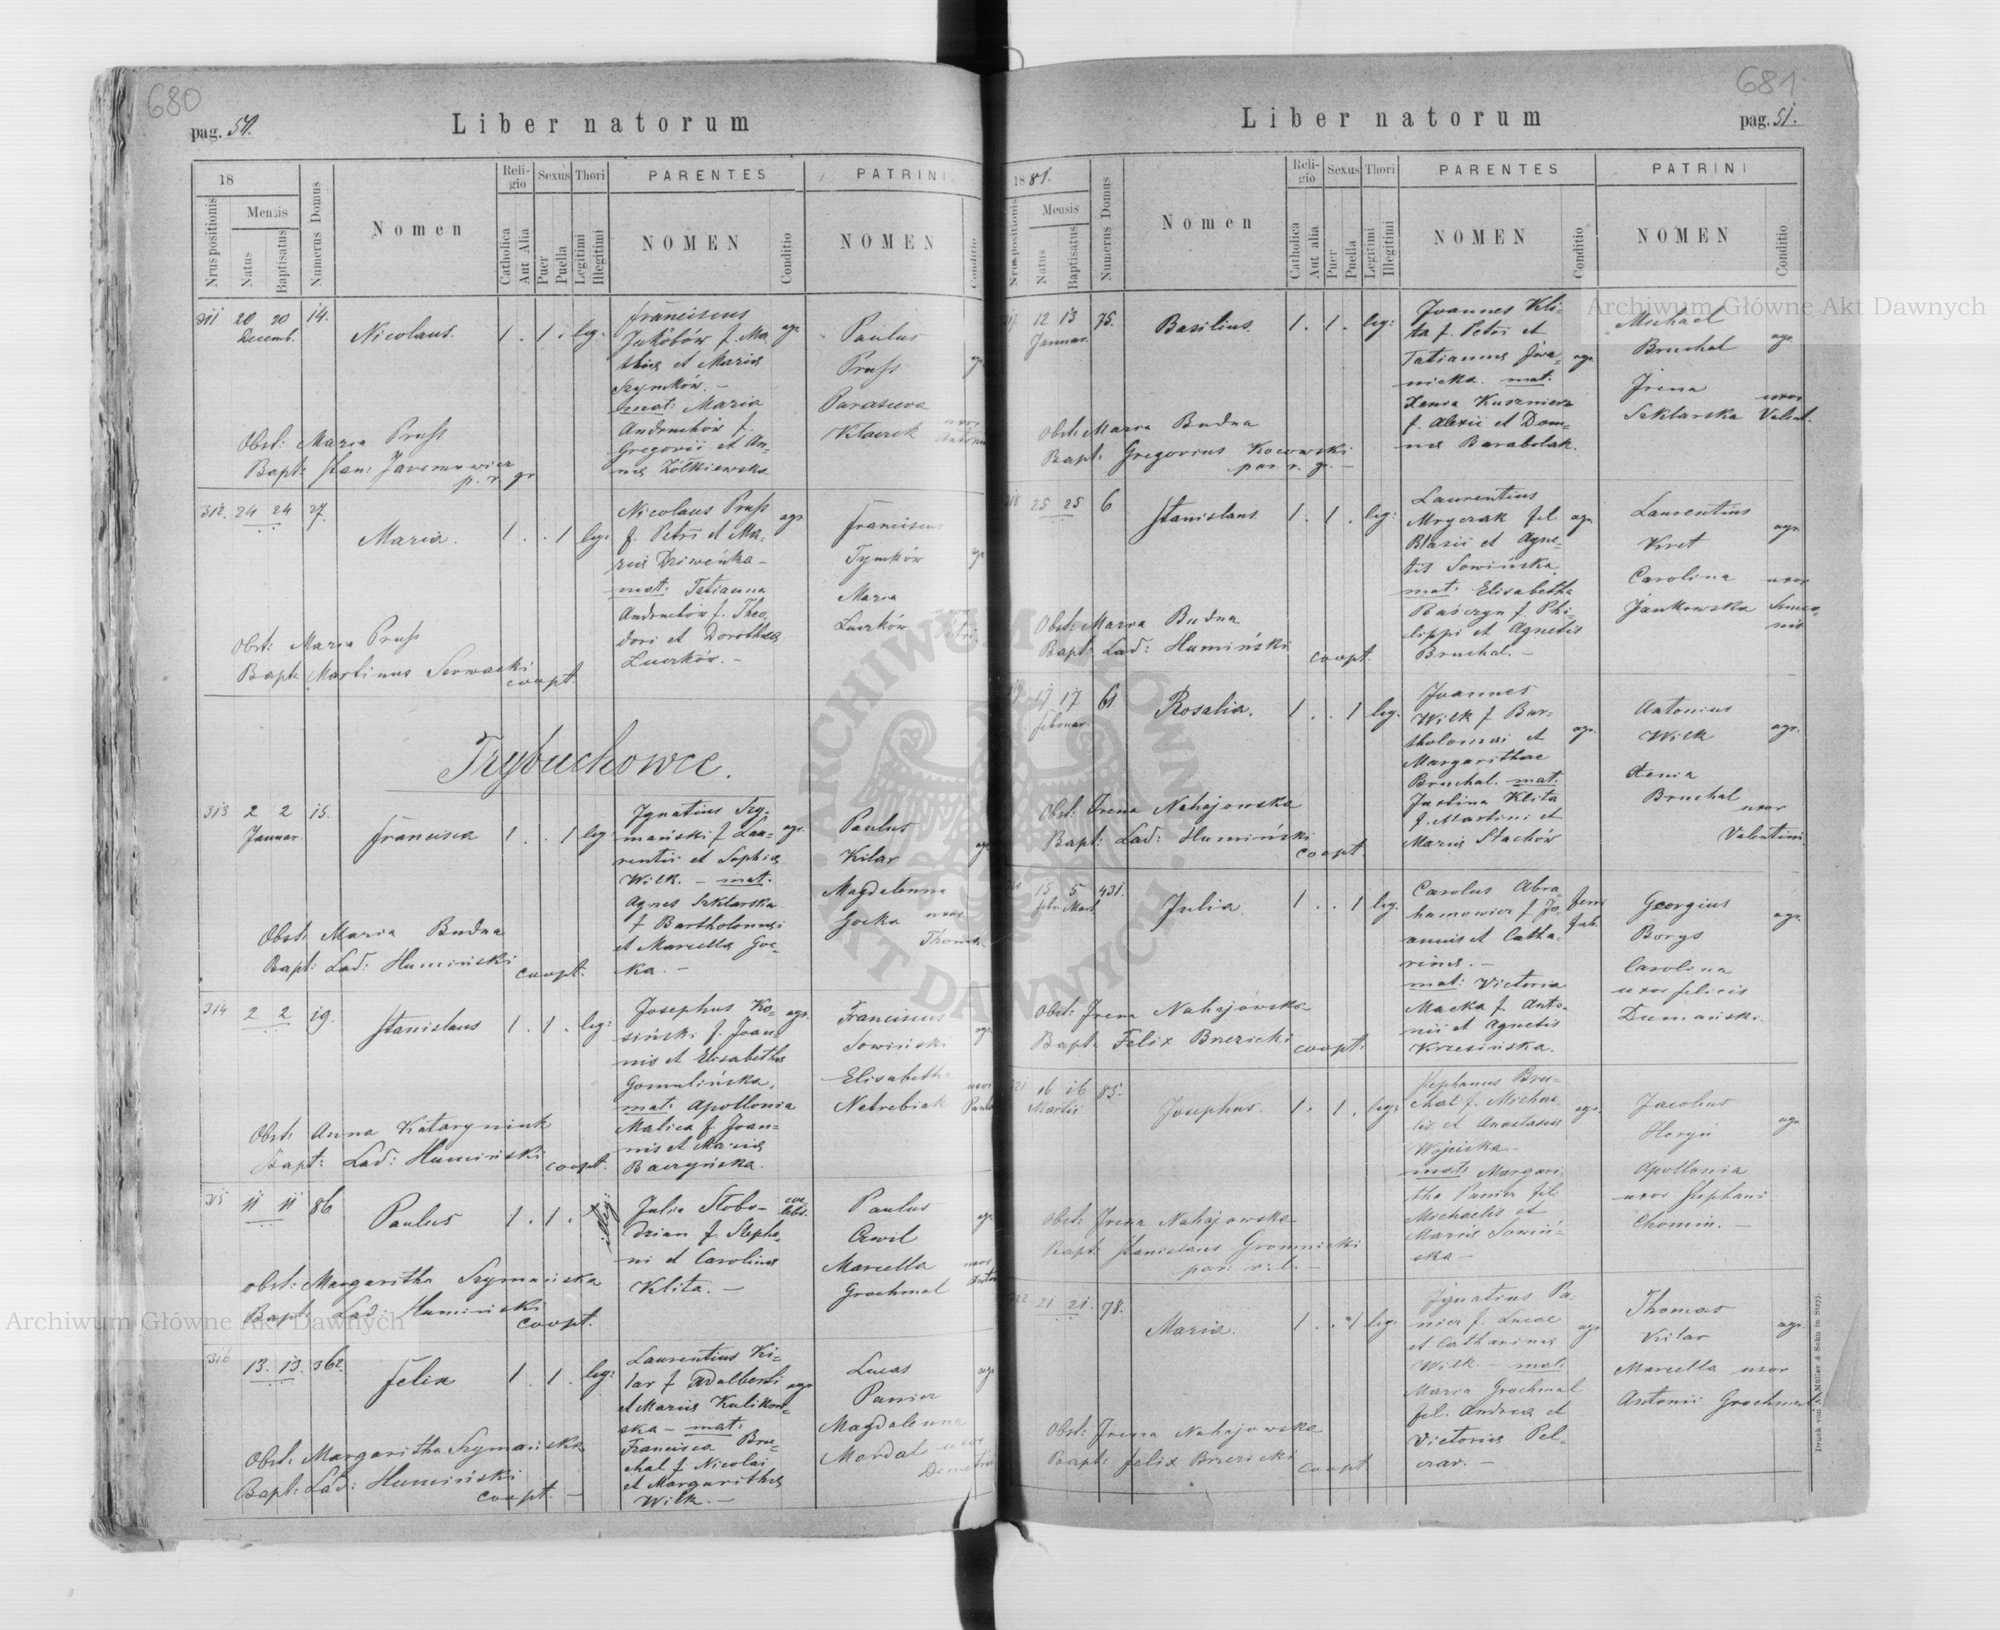 680
pag. 50.
Liber natorum
18
Nrus positionis
Mensis
Natus
Baptisatus
Numerus Domus
Nomen
Religio
Catholica
Aut Alia
Sexus
Puer
Puella
Thori
Legitimi
Illegitimi
PARENTES
NOMEN
Conditio
PATRINI
NOMEN
Conditio
311 20 20 14. Nicolaus. 1 . 1 . leg:
Decemb.
Franciscus
Jakóbów f. Ma-
thiae et Mariae
Szymków. –
mat: Maria
Andruchów f.
Gregorii et An-
nae Żółkiewska
agr
Paulus
Pruss
Parasceva
Klacek uxor
Obst: Maria Pruss
Bapt:
p. r. gr
312. 24 24 27. Maria. 1 . . 1 leg:
Nicolaus Pruss
f. Petri et Ma-
riae Dziweńka –
mat: Tatianna
Andruchów f. Theo-
dori et Dorothea
Luczków. –
agr
Franciscus
Tymków
Maria
Luczków
Petri
Obst: Maria Pruss
Bapt: Martinus Serwacki
coopt.
Trybuchowce.
313 2 2 15. Francisca 1 . . 1 leg:
Januar.
Ignatius Szy-
mański f. Lau-
rentii et Sophiae
Wilk. – mat:
Agnes Szklarska
f. Bartholomaei
et Marcella Goc-
ka. –
agr.
Paulus
Kilar
Magdalenna
Gocka uxor
Thomae
Obst: Maria Budna
Bapt: Lad: Humiński
coopt.
314 2 2 19. Stanislaus 1 . 1 . leg:
Josephus Ko-
siński f. Joan-
nis et Elisabetha
Gomulińska,
mat: Apollonia
Malica f. Joan-
nis et Mariae
Baczyńska.
agr.
Franciscus
Sowiński
Elisabetha
Netrebiak
uxor
Obst: Anna Kataryniuk
Bapt: Lad: Humiński
coopt.
315 11 11 86 Paulus 1 . 1 . illeg
Julia Słobo-
dzian f. Stepha-
ni et Carolina
Klita. –
coe-
lebs.
Paulus
Cwil
Marcella
Grochmal
uxor
Obst: Margaritha Szymańska
Bapt: Lad: Humiński
coopt.
316 13. 13. 362. Felix 1 . 1 . leg:
Laurentius Ki-
lar f. Adalberti
et Mariae Kulikow-
ska – mat:
Francisca Bru-
chal f. Nicolai
et Margaritha
Wilk. –
agr
Lucas
Panier
Magdalenna
Mordal uxor
Obst: Margaritha Szymańska
Bapt: Lad: Humiński
coopt. –
681
Liber natorum
pag. 51.
1881.
Nrus positionis
Mensis
Natus
Baptisatus
Numerus Domus
Nomen
Religio
Catholica
Aut alia
Sexus
Puer
Puella
Thori
Legitimi
Illegitimi
PARENTES
NOMEN
Conditio
PATRINI
NOMEN
Conditio
12 13 75. Basilius. 1 . 1 . leg:
Januar.
Joannes Kli-
ta f. Petri et
Tatiannae Iwa-
nicka. mat:
Xenia Kusznierz
f. Alexii et Dom-
nae Barabolak.
agr.
Michael
Bruchal
agr.
Irena
Szklarska
uxor
Valent.
Obst: Maria Budna
Bapt: Gregorius Kocowski
par. r. g. –
318 25 25 6 Stanislaus 1 . 1 . leg:
Laurentius
Mryczak fil
Blasii et Agne-
tis Sowińska
mat: Elisabetha
f. Phi-
lippi et Agnetis
Bruchal. –
agr.
Laurentius
Kret
agr.
Carolina uxor
Jankowska Simeo-
nis
Obst: Maria Budna
Bapt: Lad: Humiński
coopt.
17 17 61. Rosalia. 1 . . 1 leg:
Februar.
Joannes
Wilk f. Bar-
tholomaei et
Margarithae
Bruchal. mat:
Justina Klita
f. Martini et
Mariae Stachów
agr.
Antonius
Wilk
agr.
Xenia
Bruchal
uxor
Valentini
Obst: Irena Nahajowska
Bapt: Lad: Humiński
coopt.
15 5 431. Julia 1 . . 1 leg.
Febr Mart
Carolus Abra-
hamowicz f. Jo-
annis et Catha-
rinae. –
mat: Victoria
Macka f. Anto-
nii et Agnetis
Krzesińska.
Georgius
Borys
agr.
Carolina
uxor Felicis
Dumański.
Obst: Irena Nahajowska
Bapt: Felix Brzezicki
coopt:
16 16 85. Josephus. 1 . 1 . leg:
Martii
Stephanus Bru-
chal f. Michae-
lis et Anastasiae
Wójcicka –
mat: Margari-
tha Panier fil
Michaelis et
Mariae Sowiń-
ska –
agr.
Jacobus
Horyń
agr
Apollonia
uxor Stephani
Chomin. –
Obst: Irena Nahajowska
Bapt: Stanislaus Gromnicki
par: r: l. –
21 21. 78. Maria. 1 . . 1 leg:
Ignatius Pa-
nier f. Lucae
et Catharinae
Wilk. – mat:
Maria Grochmal
fil. Andrea et
Victoriae Pel-
czar. –
agr
Thomas
Kilar
agr.
Marcella uxor
Antonii Grochmal
Obst: Irena Nahajowska
Bapt: Felix Brzezicki
coopt
Druck von A. Müller & Sohn in Stryj.
Archiwum Główne Akt Dawnych
Archiwum Główne Akt Dawnych
ARCHIWUM GŁÓWNE AKT DAWNYCH